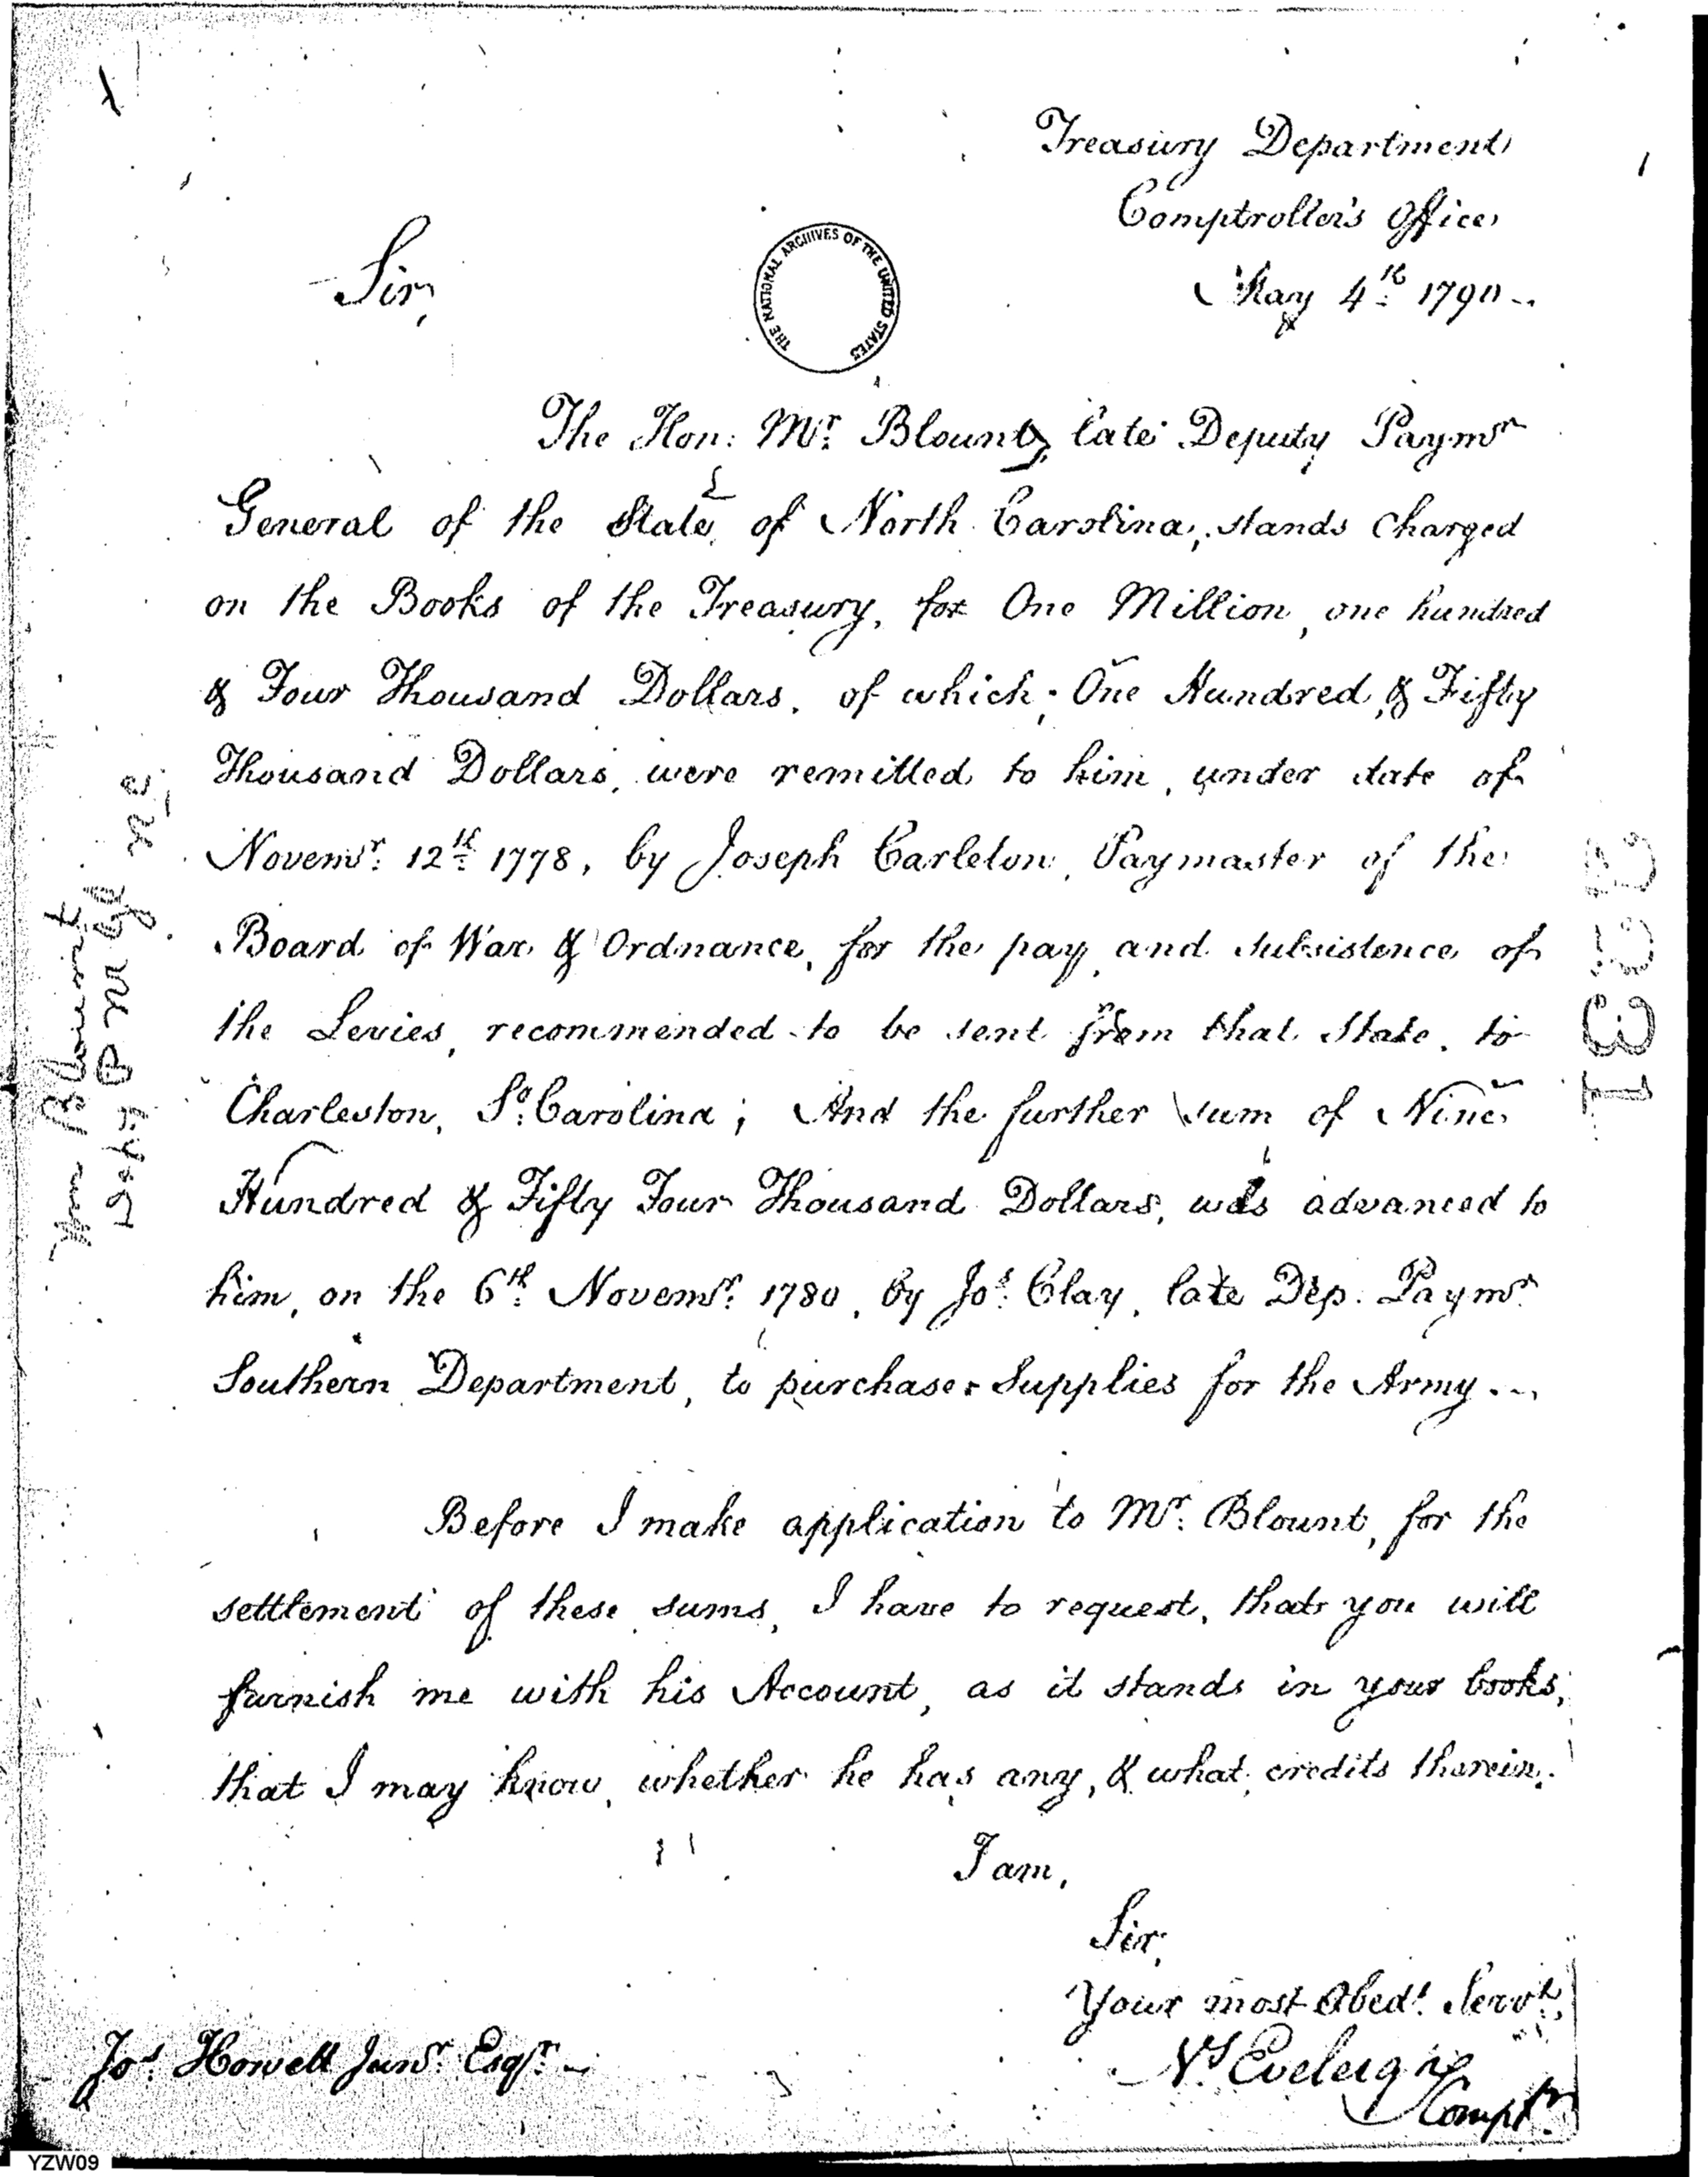 Treasury Department
Comptroller's Office
May 4th 1790
Sir,
THE NATIONAL ARCHIVES OF THE UNITED STATES
The Hon: Mr. Blount, late Deputy Paymr
General of the State of North Carolina, stands charged
on the Books of the Treasury, for One Million, one hundred
& Four Thousand Dollars, of which, One Hundred & Fifty
Thousand Dollars, were remitted to him, under date of
Novemr. 12th 1778, by Joseph Carleton, Paymaster of the
Board of War & Ordnance, for the pay and subsistence of
the Levies, recommended to be sent from that State, to
Charleston, So. Carolina; And the further sum of Nine
Hundred & Fifty Four Thousand Dollars, was advanced to
him, on the 6th. Novemr. 1780, by Jos. Clay, late Dep. Paymr.
Southern Department, to purchase Supplies for the Army.
Before I make application to Mr. Blount, for the
settlement of these sums, I have to request, that you will
furnish me with his Account, as it stands in your books,
that I may know, whether he has any, & what, credits therein.
I am,
Sir,
Your most Obedt. Servt,
Ns. Eveleigh
Compt.r
Jos. Howell Junr. Esqr.
Blount
YZW09